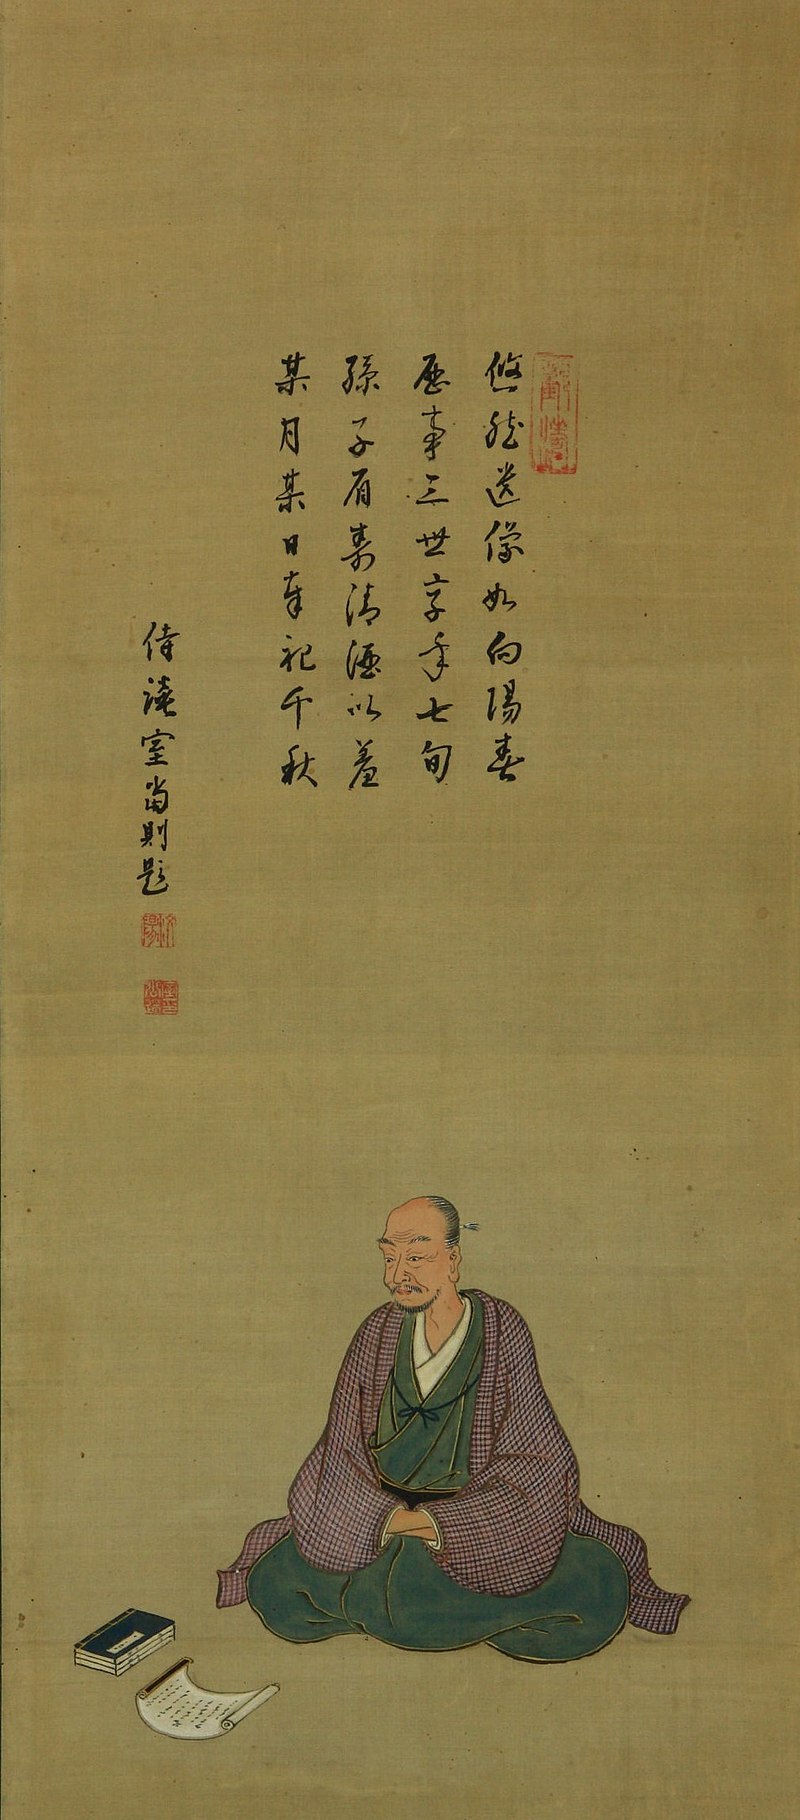 悠然遺像如向陽春
歴事三世享年七旬
孫子有素清酒以羞
某月某日奉祀千秋
侍読室尚則題